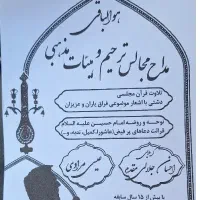 هوالباقی
مداح مجالس ترحیم و هیئات مذهبی
تلاوت قرآن مجلسی
دشتی با اشعار موضوعی فراق یاران و عزیزان
نوحه و روضه امام حسین علیه السلام
قرائت دعاهای پر فیض (عاشورا، کمیل، ندبه و...)
عیسی مرادی
با بیش از ۱۵ سال سابقه